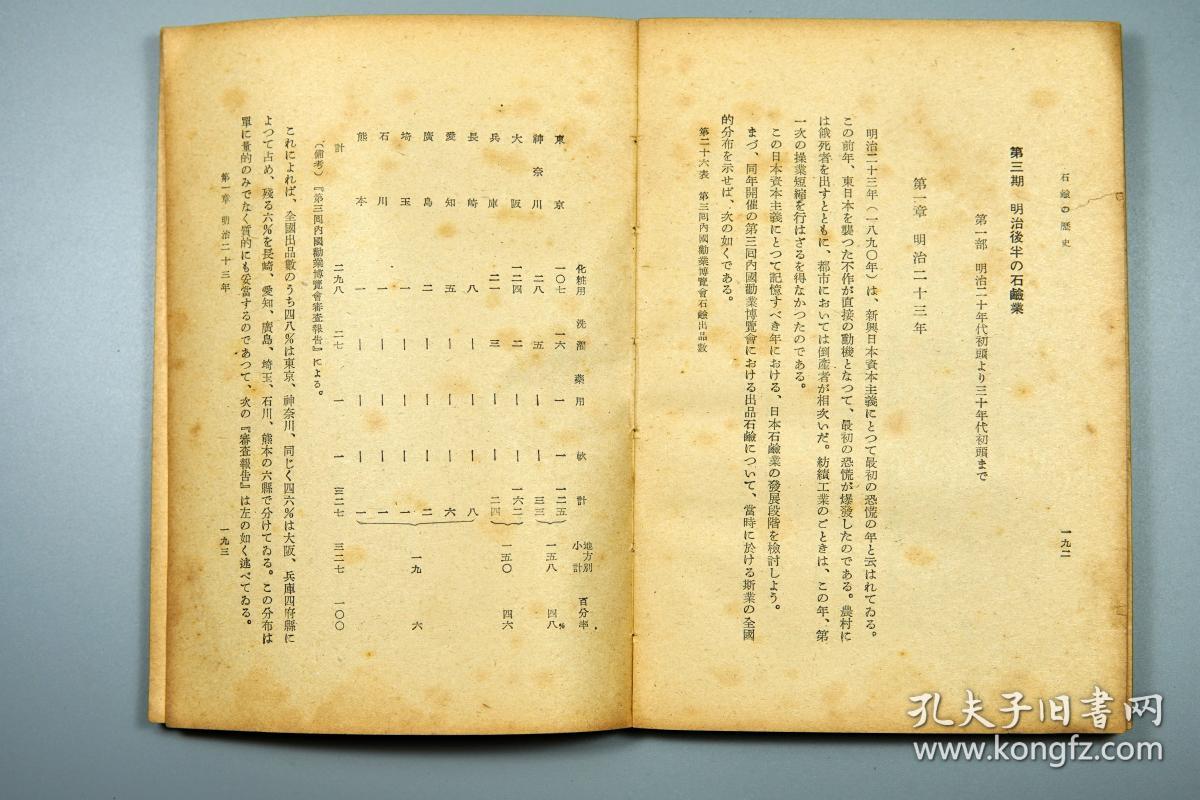 石鹼の歷史
一九二
第三期　明治後半の石鹼業
第一部　明治二十年代初頭より三十年代初頭まで
第一章　明治二十三年
明治二十三年（一八九〇年）は、新興日本資本主義にとつて最初の恐慌の年と云はれてゐる。
この前年、東日本を襲つた不作が直接の動機となつて、最初の恐慌が爆發したのである。農村に
は餓死者を出すとともに、都市においては倒產者が相次いだ。紡績工業のごときは、この年、第
一次の操業短縮を行はざるを得なかつたのである。
この日本資本主義にとつて記憶すべき年における、日本石鹼業の發展段階を檢討しよう。
まづ、同年開催の第三囘內國勸業博覽會における出品石鹼について、當時に於ける斯業の全國
的分布を示せば、次の如くである。
第二十六表　第三囘內國勸業博覽會石鹼出品數
化粧用　洗濯　藥用　軟　計　地方別小計　百分率
東京　一〇七　一六　一　一　一二五　一五八　四八%
神奈川　二八　五　—　—　三三
大阪　一二四　二　—　—　一二六　一五〇　四六
兵庫　二一　三　—　—　二四
長崎　八　—　—　—　八　一九　六
愛知　五　—　—　—　六
廣島　二　—　—　—　二
埼玉　一　—　—　—　一
石川　一　—　—　—　一
熊本　一　—　—　—　一
計　二九八　二七　一　一　三二七　三二七　一〇〇
（備考）『第三囘內國勸業博覽會審査報告』による。
これによれば、全國出品數のうち四八%は東京、神奈川、同じく四六%は大阪、兵庫四府縣に
よつて占め、殘る六%を長崎、愛知、廣島、埼玉、石川、熊本の六縣で分けてゐる。この分布は
單に量的のみでなく質的にも妥當するのであつて、次の『審査報告』は左の如く述べてゐる。
第一章　明治二十三年
一九三
孔夫子旧书网
www.kongfz.com